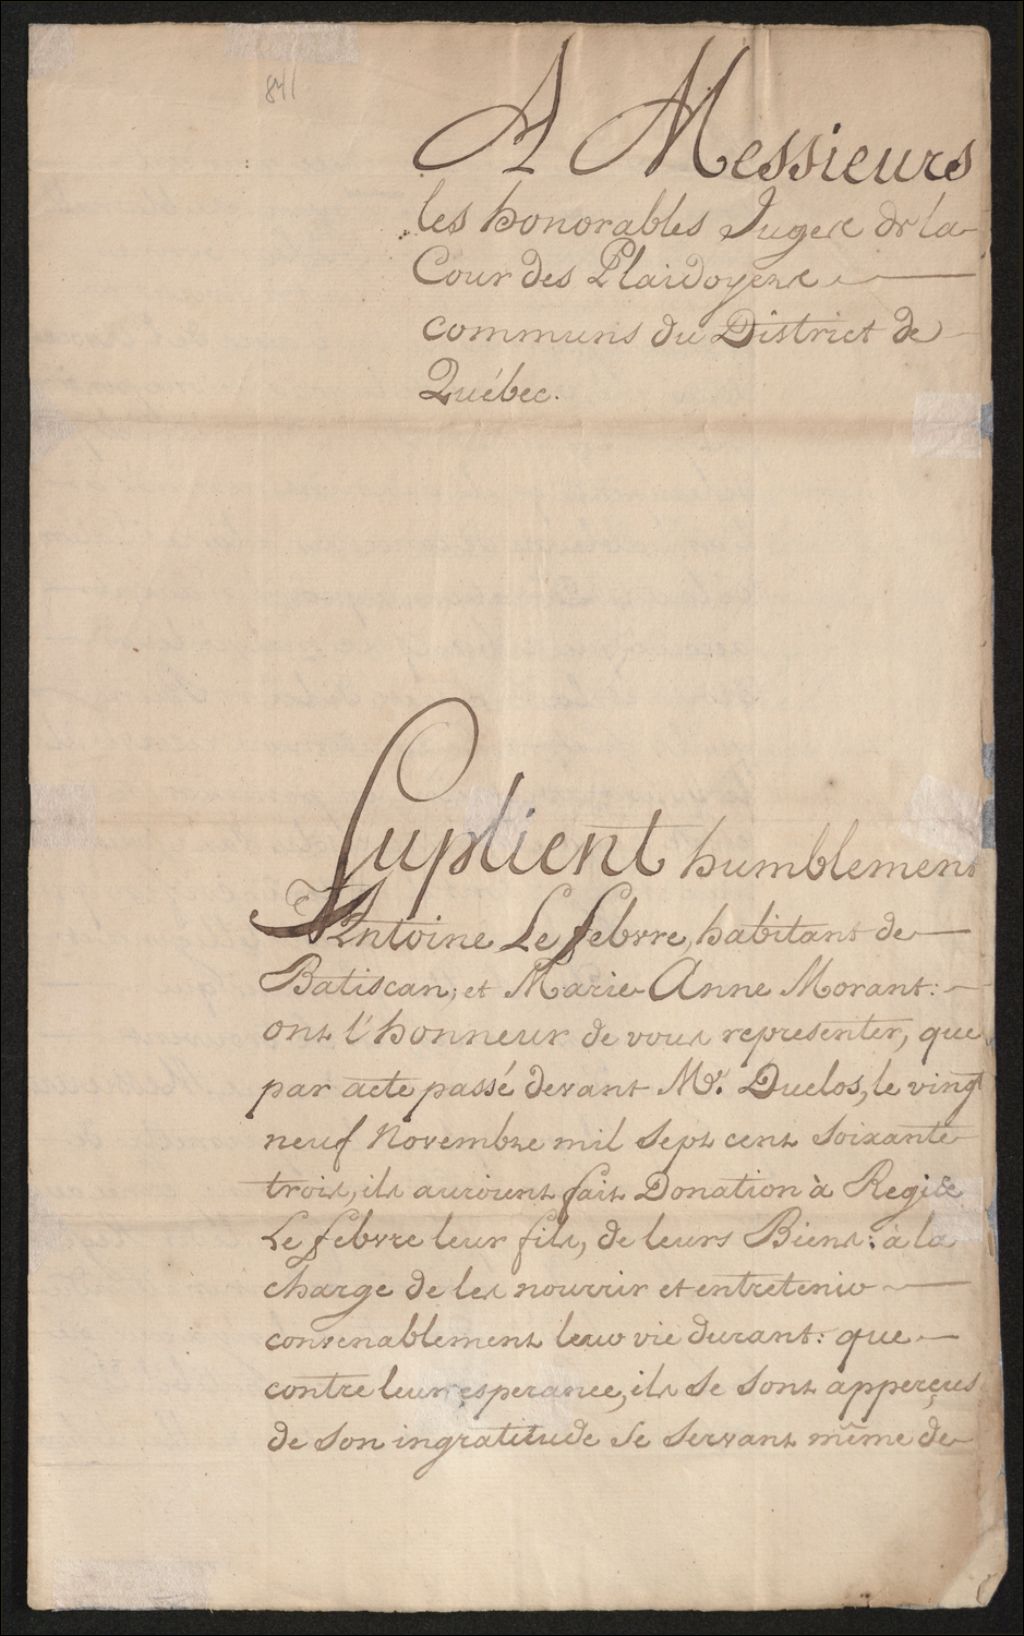 841
A Messieurs
les honorables Juges de la
Cour des Plaidoyers
communs du District de
Québec.
Suplient humblement
Antoine Le febvre, habitant de
Batiscan; et Marie Anne Morant:
ont l'honneur de vous representer, que
par acte passé devant Mr. Duclos, le vingt
neuf Novembre mil sept cent soixante
trois, ils auroient fait Donation à Regise
Le febvre leur fils, de leurs Biens: à la
charge de les nourrir et entretenir
convenablement leur vie durant: que
contre leur esperance, ils se sont apperçeus
de son ingratitude se servant même de